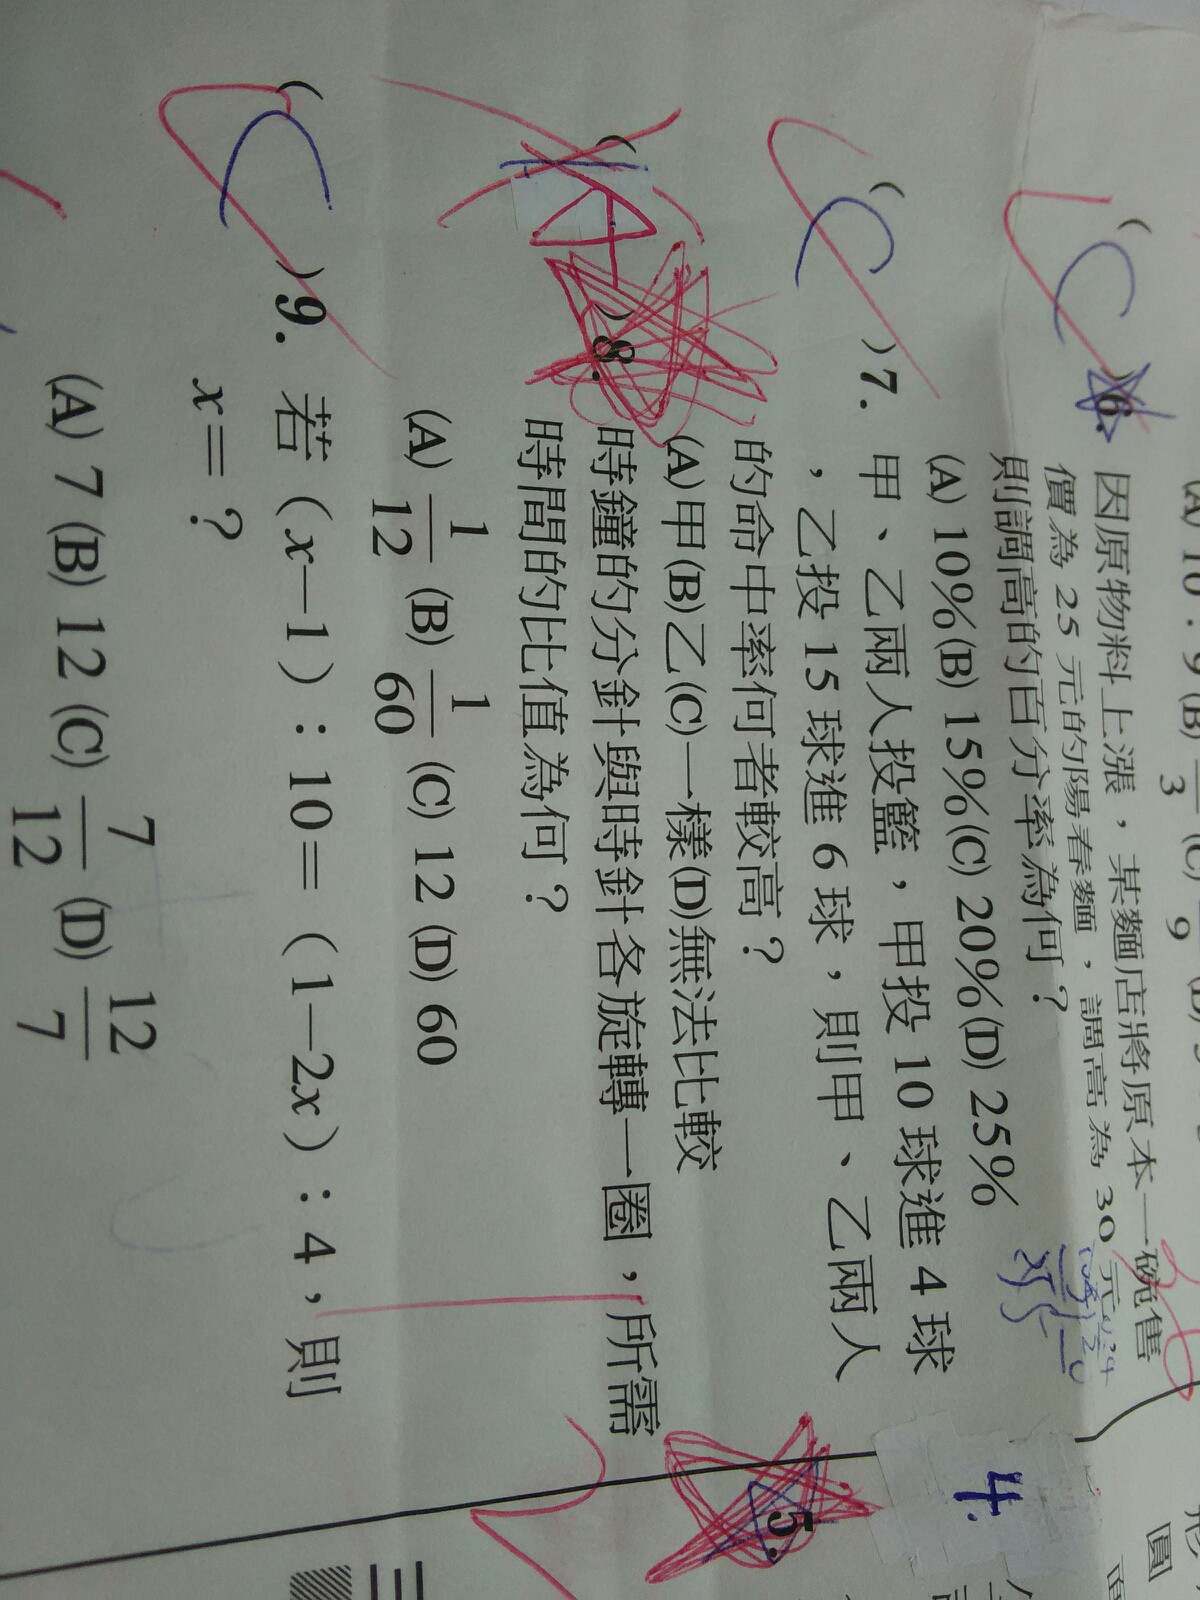 (C)6. 因原物料上漲，某麵店將原本一碗售
價為 25 元的陽春麵，調高為 30 元，
則調高的百分率為何？
(A) 10%(B) 15%(C) 20%(D) 25%
(C)7. 甲、乙兩人投籃，甲投 10 球進 4 球
，乙投 15 球進 6 球，則甲、乙兩人
的命中率何者較高？
(A)甲(B)乙(C)一樣(D)無法比較
(A)8. 時鐘的分針與時針各旋轉一圈，所需
時間的比值為何？
(A) 1/12 (B) 1/60 (C) 12 (D) 60
(C)9. 若（x−1）：10＝（1−2x）：4，則
x＝？
(A) 7 (B) 12 (C) 7/12 (D) 12/7
4.
5.
圓
三